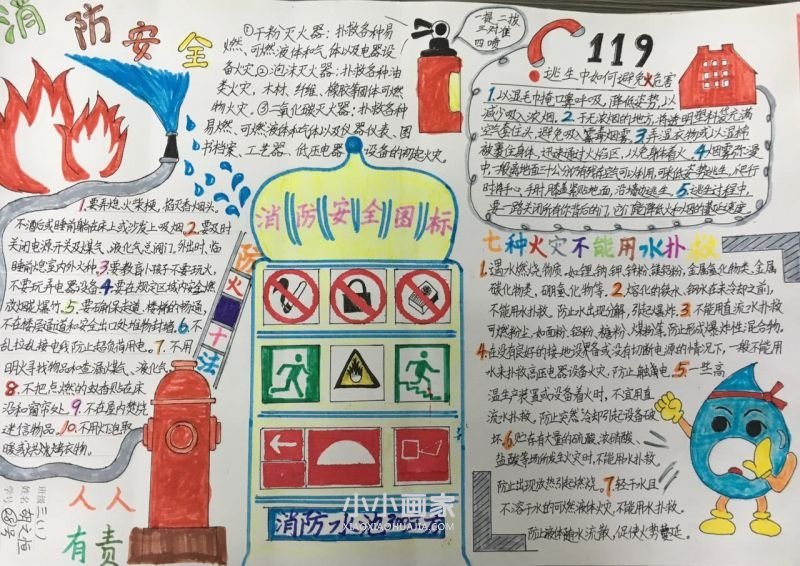 消防安全
①干粉灭火器：扑救各种易
燃、可燃液体和气体以及电器设
备火灾②泡沫灭火器：扑救各种油
类火灾，木材、纤维、橡胶等固体可燃
物火灾。③二氧化碳灭火器：扑救各种
易燃、可燃液体和气体以及仪器仪表、图
书档案、工艺器、低压电器设备的初起火灾
一提二拔
三对准
四喷
119
逃生中如何避免火危害
1.以湿毛巾掩口鼻呼吸，降低姿势，以
减少吸入浓烟。2.于无浓烟的地方，将透明塑料袋充满
空气套住头，避免吸入
3.弄湿衣物或以湿棉
被裹住身体，迅速通过火焰区，以免身体着火。4.烟雾弥漫
5.逃生过程中，
要一路关闭所有你背后的门，它能降低火和烟的蔓延速度。
1.要弄熄火柴梗，掐灭香烟头。
不酒后或睡前躺在床上或沙发上吸烟。2.要及时
关闭电源开关及煤气、液化气总阀门，外出时、临
睡前熄室内外火种。3.要教育小孩子不要玩火，
不要玩弄电器设备。4.要在规定区域内安全燃
放烟花爆竹。5.要确保走道、楼梯的畅通，
不在楼层通道和安全出口处堆物封墙。6.不
乱拉乱接电线防止超负荷用电。7.不用
明火寻找物品和查漏煤气、液化气
8.不把点燃的蚊香贴在床
沿和窗帘处。9.不在屋内焚烧
迷信物品。10.不用灯泡取
暖或烘烧烤衣物。
防火十法
消防安全图标
消防
七种火灾不能用水扑救
1.遇水燃烧物质，如锂、钠、钾、锌粉、镁铝粉，金属氰化物类、金属
碳化物类、硼氢化物等。2.熔化的铁水、钢水在未冷却之前，
不能用水扑救，防止水出现分解，引起爆炸。3.不能用直流水扑救
可燃粉尘，如面粉、铝粉、糖粉、煤粉等，防止形成爆炸性混合物，
4.在没有良好的接地设备或没有切断电源的情况下，一般不能用
水来扑救高压电器设备火灾，防止触漏电。5.一些高
温生产装置或设备着火时，不宜用直
流水扑救，防止突然冷却引起设备破
坏。6.贮存有大量的硫酸、浓硝酸、
盐酸等场所发生火灾时，不能用水扑救，
防止出现放热引起燃烧。7.轻于水且
不溶于水的可燃液体火灾，不能用水扑救，
防止液体随水流散，促使火势蔓延。
人人
有责
班级 三(1)
姓名
学号
小小画家
XIAOXIAOHUAJIA.COM